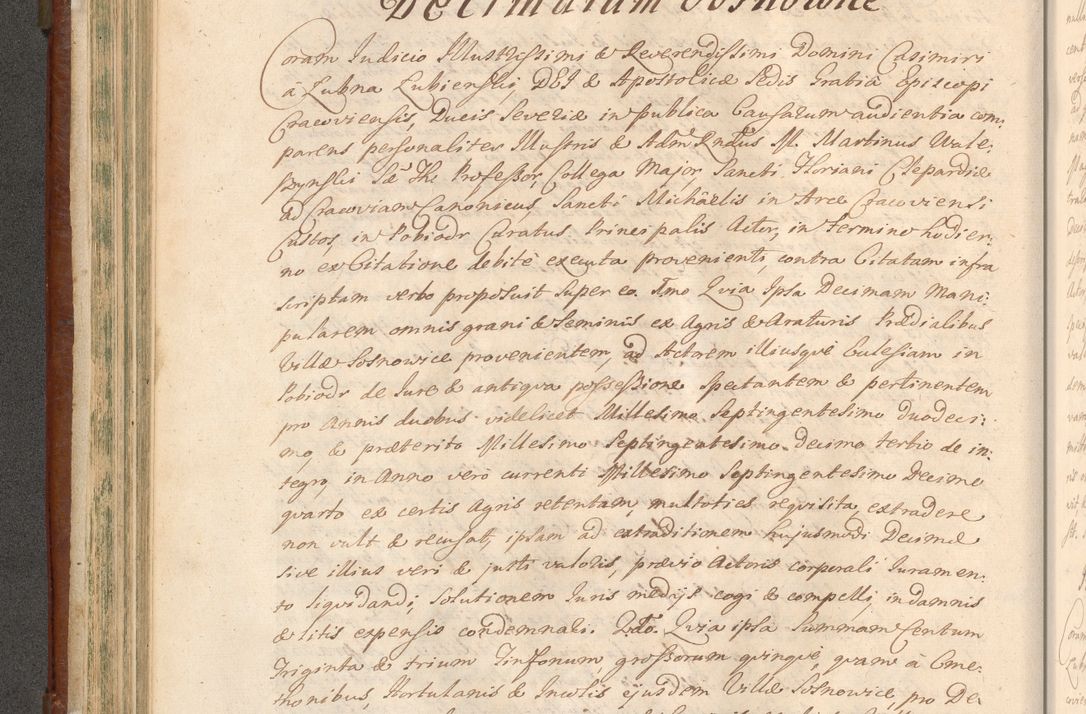 Decimarum Sosnowice
Coram Judicio Illustrissimi & Reverendissimi Domini Casimiri
à Łubna Łubienski, DEI & Apostolicæ Sedis Gratiâ Episcopi
Cracoviensis, Ducis Severiæ in publica Causarum audientia com-
parens personaliter Illustris & Adm Rndus M. Martinus Wale-
szynski Sæ Th: Professor Collega Major Sancti Floriani Clepardiæ
ad Cracoviam Canonicus, Sancti Michäelis in Arce Cracoviensi
Custos, in Pobiedr Curatus Principalis Actor, in termino hodier-
no ex Citatione debitè executa provenienti, contra Citatam infra
scriptam verbo proposuit super eo. Imo Quia Ipsa Decimam Mani-
pularem omnis grani & Seminis ex Agris & Araturis Prædialibus
Villæ Sosnowice provenientem, ad Actorem illiusquè Eclesiam in
Pobiedr de Jure & antiqva possessione spectantem & pertinentem
pro Annis duobus videlicet Millesimo Septingentesimo Duodeci-
mo, & præterito Millesimo Septingentesimo Decimo tertio de in-
tegro, in Anno verò currenti Millesimo Septingentesimo Decimo
quarto ex certis Agris retentam, multoties reqvisita, extradere
non vult & recusat, ipsam ad extraditionem hujusmodi Decimæ
sive illius veri & justi valoris, prævio Actoris corporali Juramen-
to liqvidandi, Solutionem Juris medijs cogi & compelli, in damnis
& litis expensis condemnari. 2do. Quia ipsa Summam Centum
Triginta & trium Tinfonum, grossorum qvinqvè, qvam à Cme-
thonibus, Hortulanis & Incolis ejusdem Villæ Sosnowice, pro De-